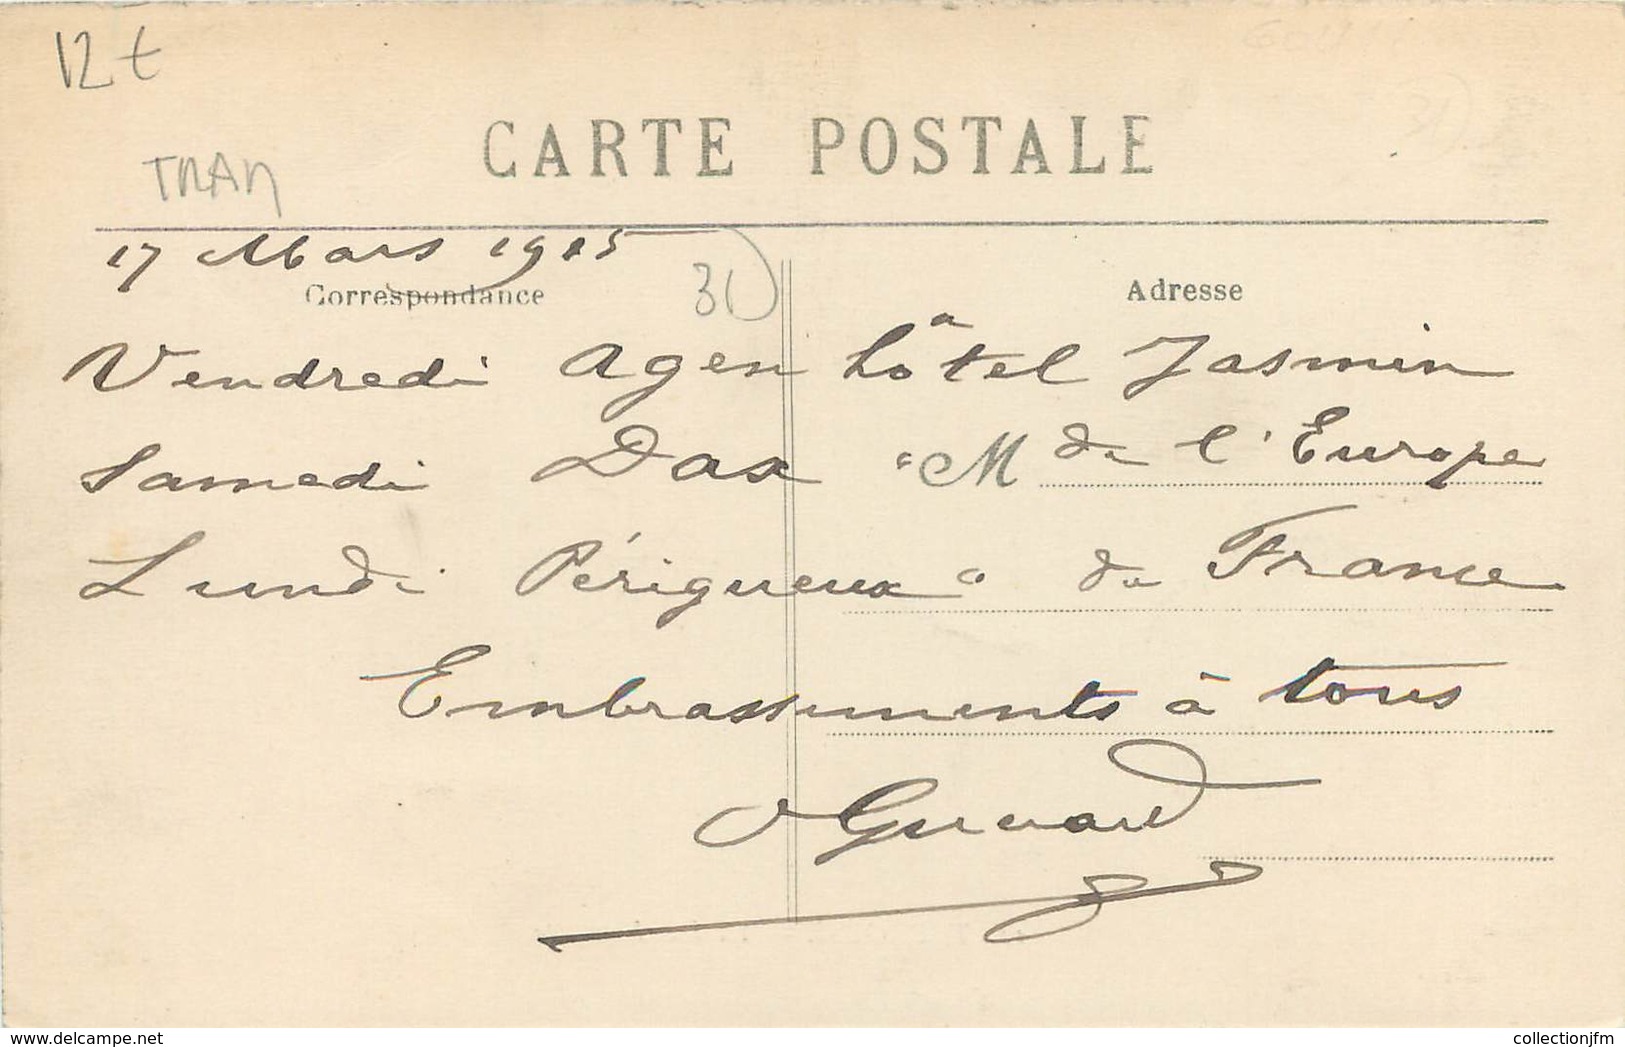 12 €
CARTE POSTALE
TRAM
17 Mars 1915
Correspondance
31
Adresse
Vendredi Agen hôtel Jasmin
Samedi Dax " M de l'Europe
Lundi Périgueux " de France
Embrassements à tous
collectionjfm